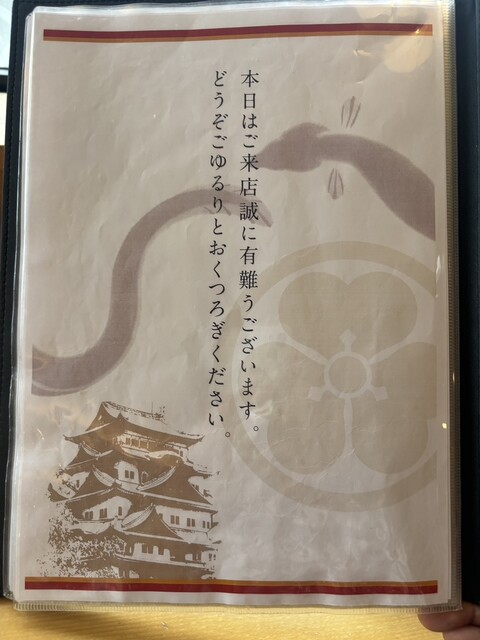 本日はご来店誠に有難うございます。
どうぞごゆるりとおくつろぎください。